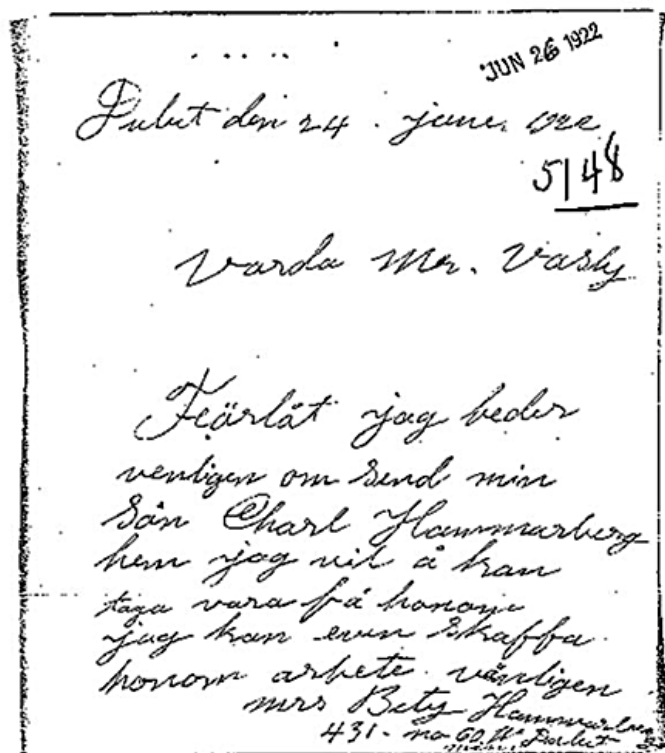 JUN 26 1922
den 24. june. 1922
5148
Varda Mr. Vasly
Feörlåt jag beder
venligen om send min
Sån Charl Hammarberg
hem jag vil å kan
taga vara på honom
jag kan even skaffa
honom arbete. vänligen
mrs Bety Hammarberg
431 - no 60. W.